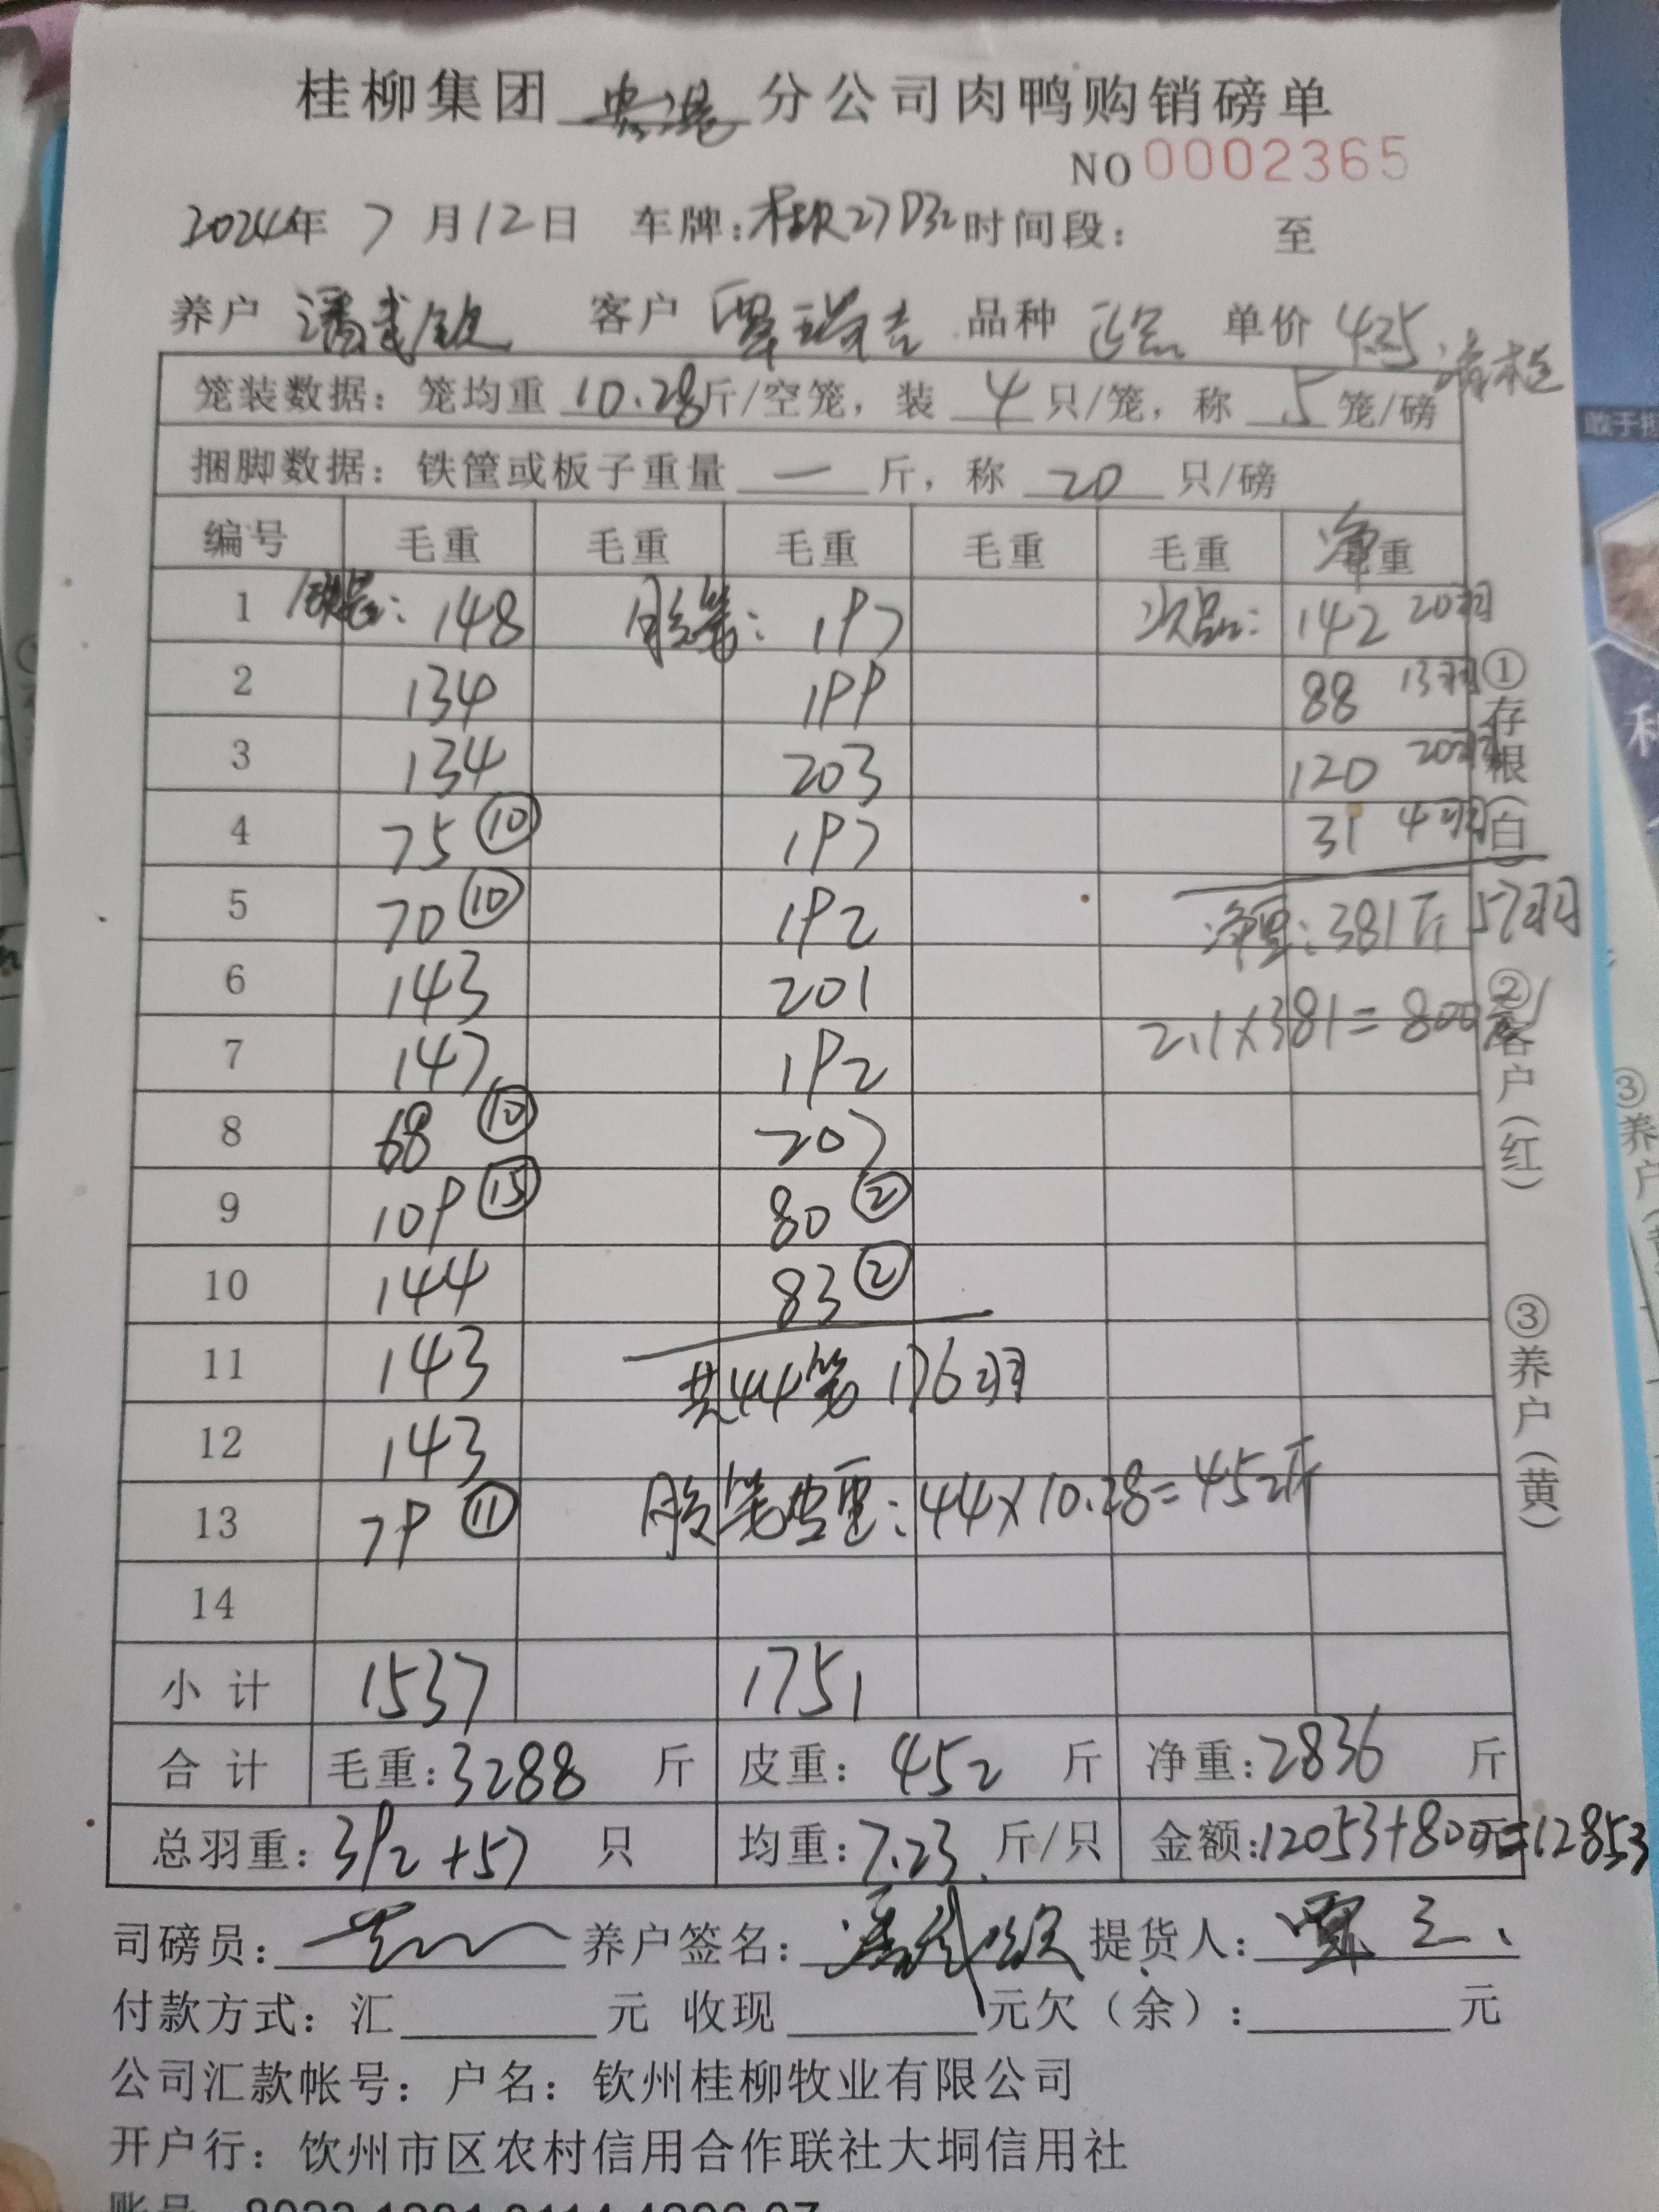 桂柳集团 贵港 分公司肉鸭购销磅单
NO 0002365
2024年 7 月12日 车牌:桂R27D32 时间段: 至
养户 潘武钦 客户 覃瑞吉 品种 正品 单价 4.25
笼装数据: 笼均重 10.28 斤/空笼, 装 4 只/笼, 称 5 笼/磅
捆脚数据: 铁筐或板子重量 一 斤, 称 20 只/磅
编号 毛重 毛重 毛重 毛重 毛重 净重
1 148 胶笼: 197 次品: 142 20羽
2 134 199 88 13羽
3 134 203 120 20羽
4 75 ⑩ 197 31 4羽
5 70 ⑩ 192 净重: 381斤 57羽
6 143 201
7 147 192 2.1×381=800元
8 68 ⑩ 207
9 109 ⑮ 80 ②
10 144 83 ②
11 143 共44笼 176羽
12 143
13 79 ⑪ 胶笼皮重: 44×10.28=452斤
14
小计 1537 1751
合计 毛重: 3288 斤 皮重: 452 斤 净重: 2836 斤
总羽重: 392+57 只 均重: 7.23 斤/只 金额: 12053+800元=12853
司磅员: 养户签名: 潘武钦 提货人: 覃
付款方式: 汇 元 收现 元欠(余): 元
公司汇款帐号: 户名: 钦州桂柳牧业有限公司
开户行: 钦州市区农村信用合作联社大垌信用社
①存根(白)
②客户(红)
③养户(黄)
③养户
敢于